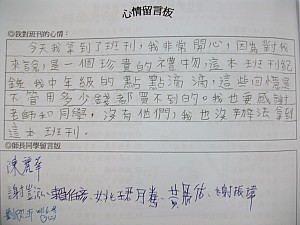 心情留言板
◎我對班刊的心情：
今天我拿到了班刊，我非常開心，因為對我
來說，是一個珍貴的禮物，這本班刊紀
錄我中年級的點點滴滴，這些回憶是
不管用多少錢都買不到的。我也要感謝
老師和同學，沒有他們，我也沒辦法拿到
這本班刊。
◎師長同學留言版
陳麗華